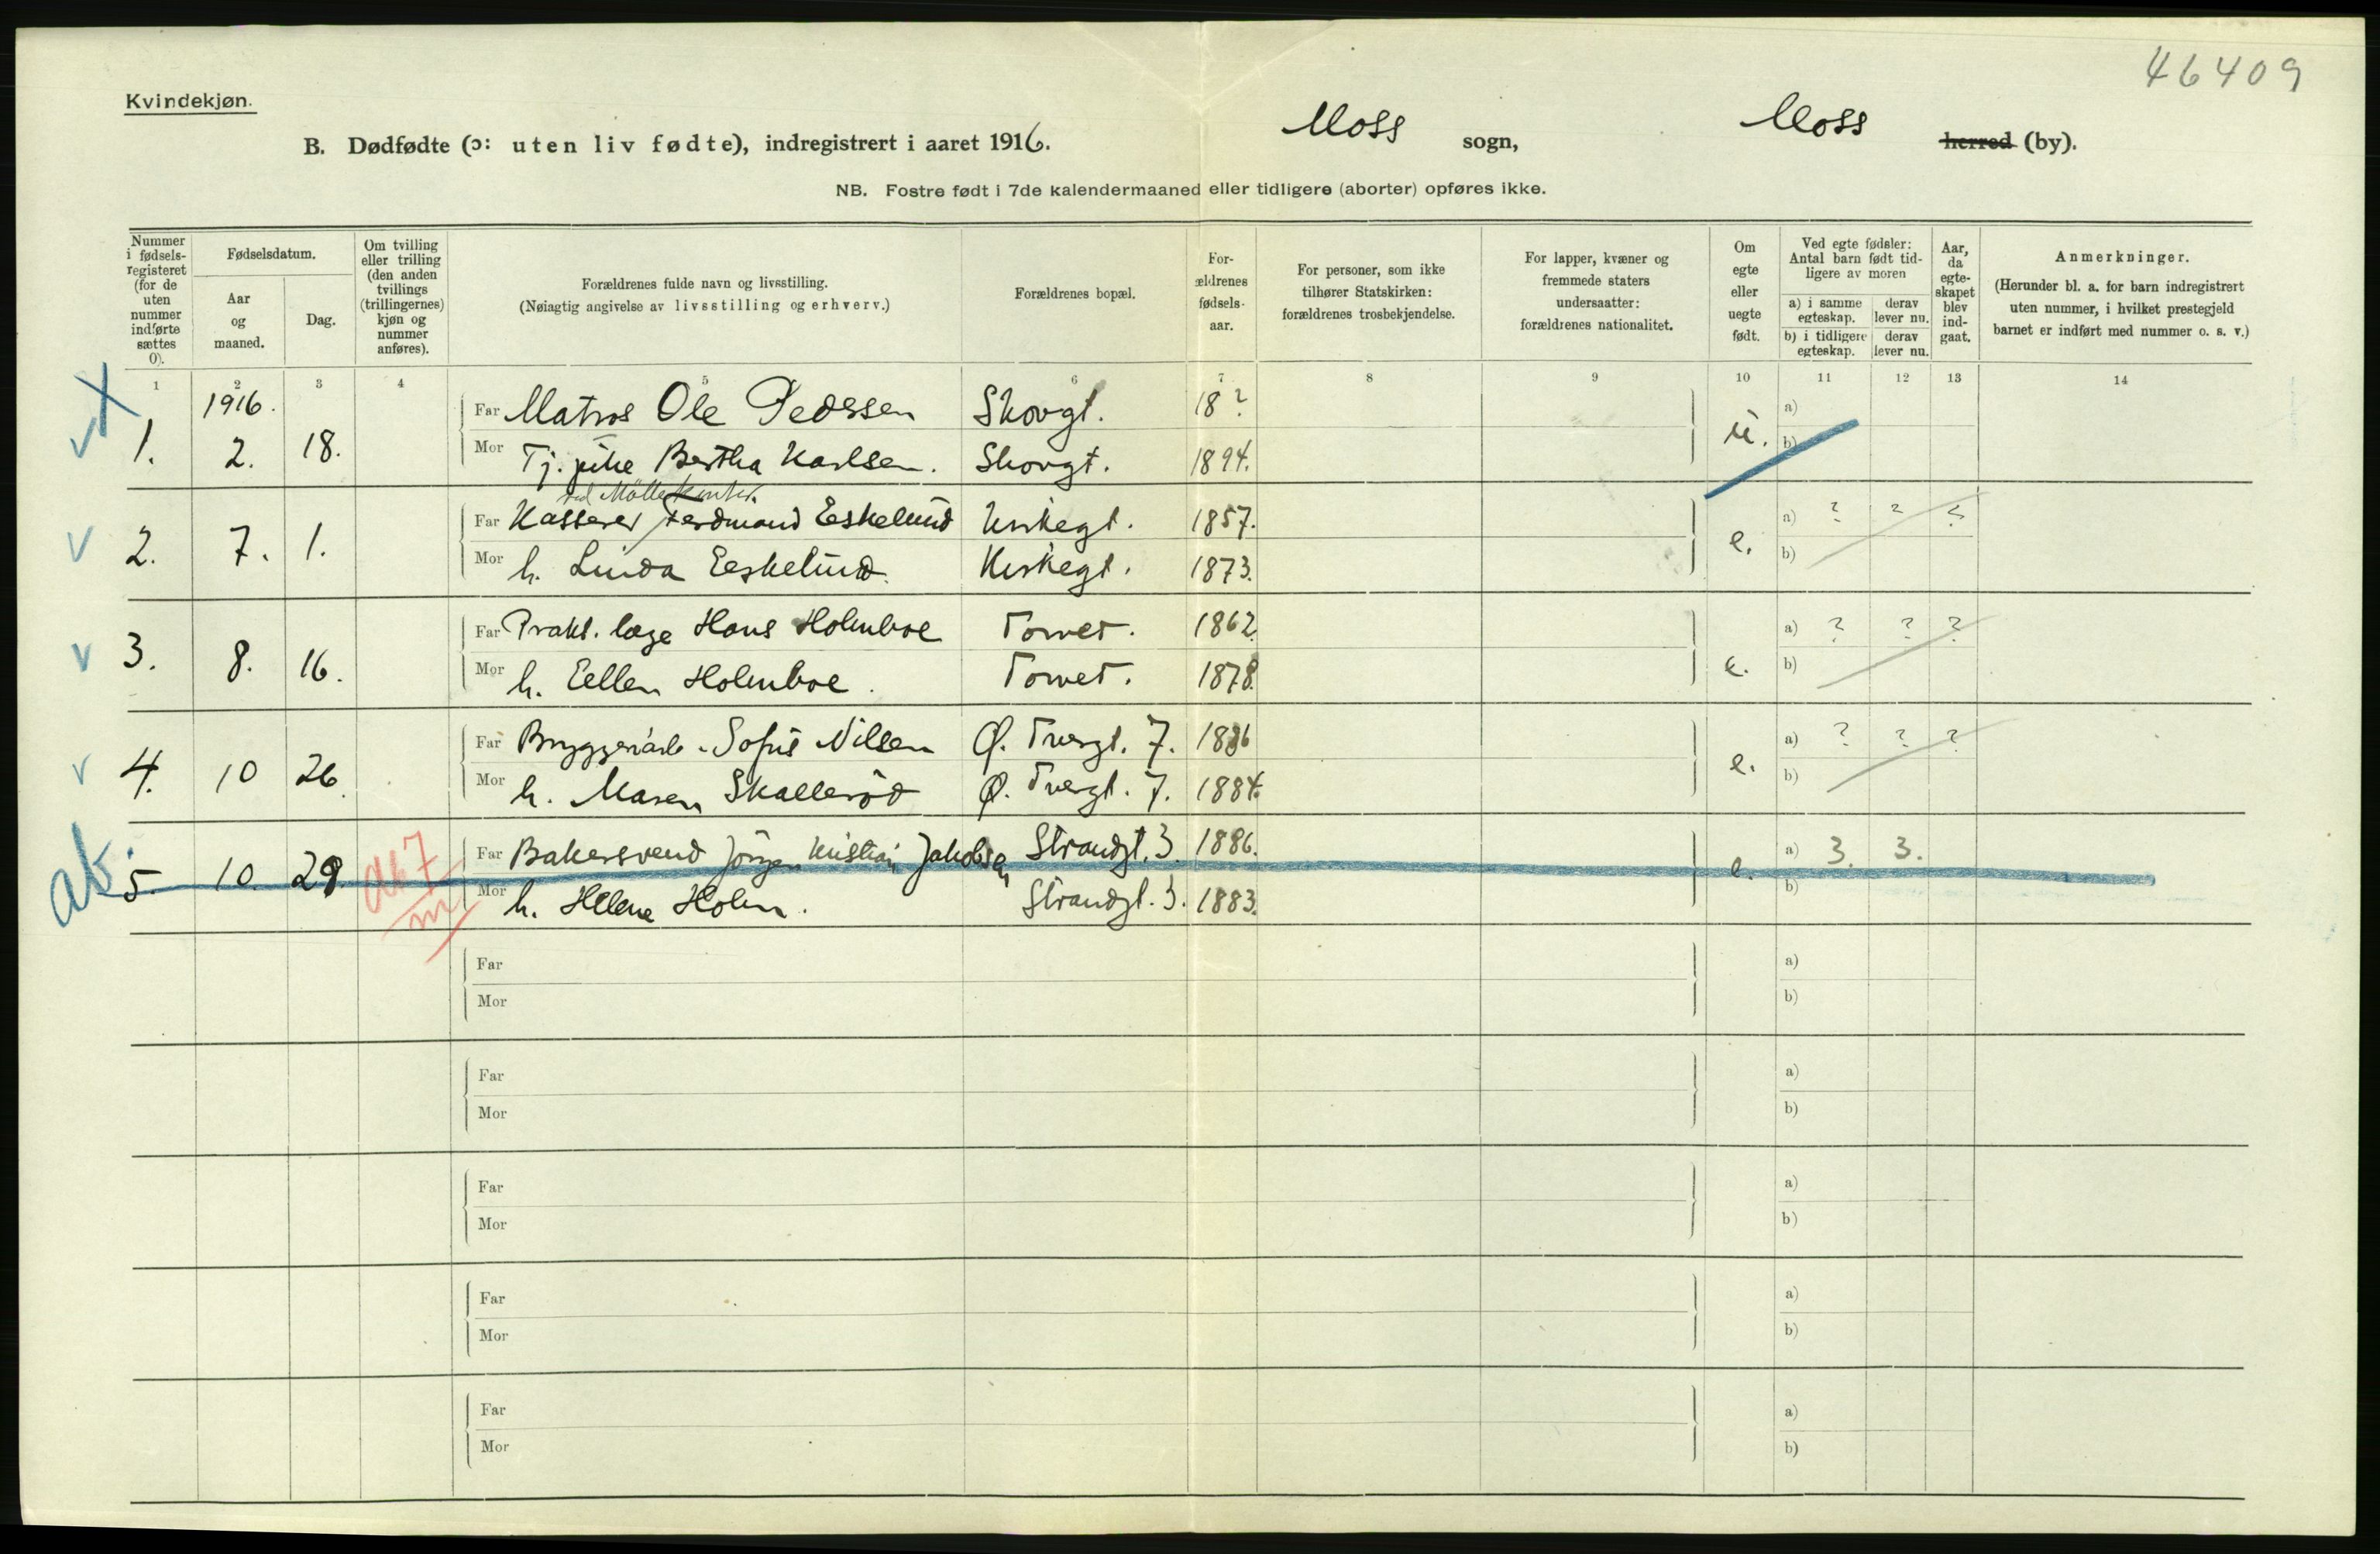 46409
Kvindekjøn.
B. Dødfødte (ɔ: uten liv fødte), indregistrert i aaret 1916. Moss sogn, Moss herred (by).
NB. Fostre født i 7de kalendermaaned eller tidligere (aborter) opføres ikke.
Nummer i fødsels-registeret (for de uten nummer indførte sættes 0).
Fødselsdatum.
Aar og maaned.
Dag.
Om tvilling eller trilling (den anden tvillings (trillingernes) kjøn og nummer anføres).
Forældrenes fulde navn og livsstilling.
(Nøiagtig angivelse av livsstilling og erhverv.)
Forældrenes bopæl.
For-ældrenes fødsels-aar.
For personer, som ikke tilhører Statskirken: forældrenes trosbekjendelse.
For lapper, kvæner og fremmede staters undersaatter: forældrenes nationalitet.
Om egte eller uegte født.
Ved egte fødsler: Antal barn født tid-ligere av moren
a) i samme egteskap. derav lever nu.
b) i tidligere egteskap. derav lever nu.
Aar, da egte-skapet blev ind-gaat.
Anmerkninger.
(Herunder bl. a. for barn indregistrert uten nummer, i hvilket prestegjeld barnet er indført med nummer o. s. v.)
1 2 3 4 5 6 7 8 9 10 11 12 13 14
1916.
1. 2. 18. Far Matros Ole Pedersen Skovgt. 18? u. a)
Mor Tj. pike Bertha Karlsen. Skovgt. 1894. b)
ved Möllekontor.
2. 7. 1. Far Kasserer Ferdinand Eeskelund Kirkegt. 1857. e. a) ? ? ?
Mor h. Linda Eeskelund. Kirkegt. 1873. b)
3. 8. 16. Far Prakt. læge Hans Holmboe Torvet. 1862. e. a) ? ? ?
Mor h. Eellen Holmboe. Torvet. 1878. b)
4. 10 26. Far Bryggeriarb. Sofus Nilsen Ø. Tvergt. 7. 1886 e. a) ? ? ?
Mor h. Maren Skallerød Ø. Tvergt. 7. 1884. b)
ab. 5. 10. 29. ab 7 m Far Bakersvend Jörgen Kristian Jakobsen Strandgt. 3. 1886. e. a) 3. 3.
Mor h. Helene Holm. Strandgt. 3. 1883. b)
Far a)
Mor b)
Far a)
Mor b)
Far a)
Mor b)
Far a)
Mor b)
Far a)
Mor b)